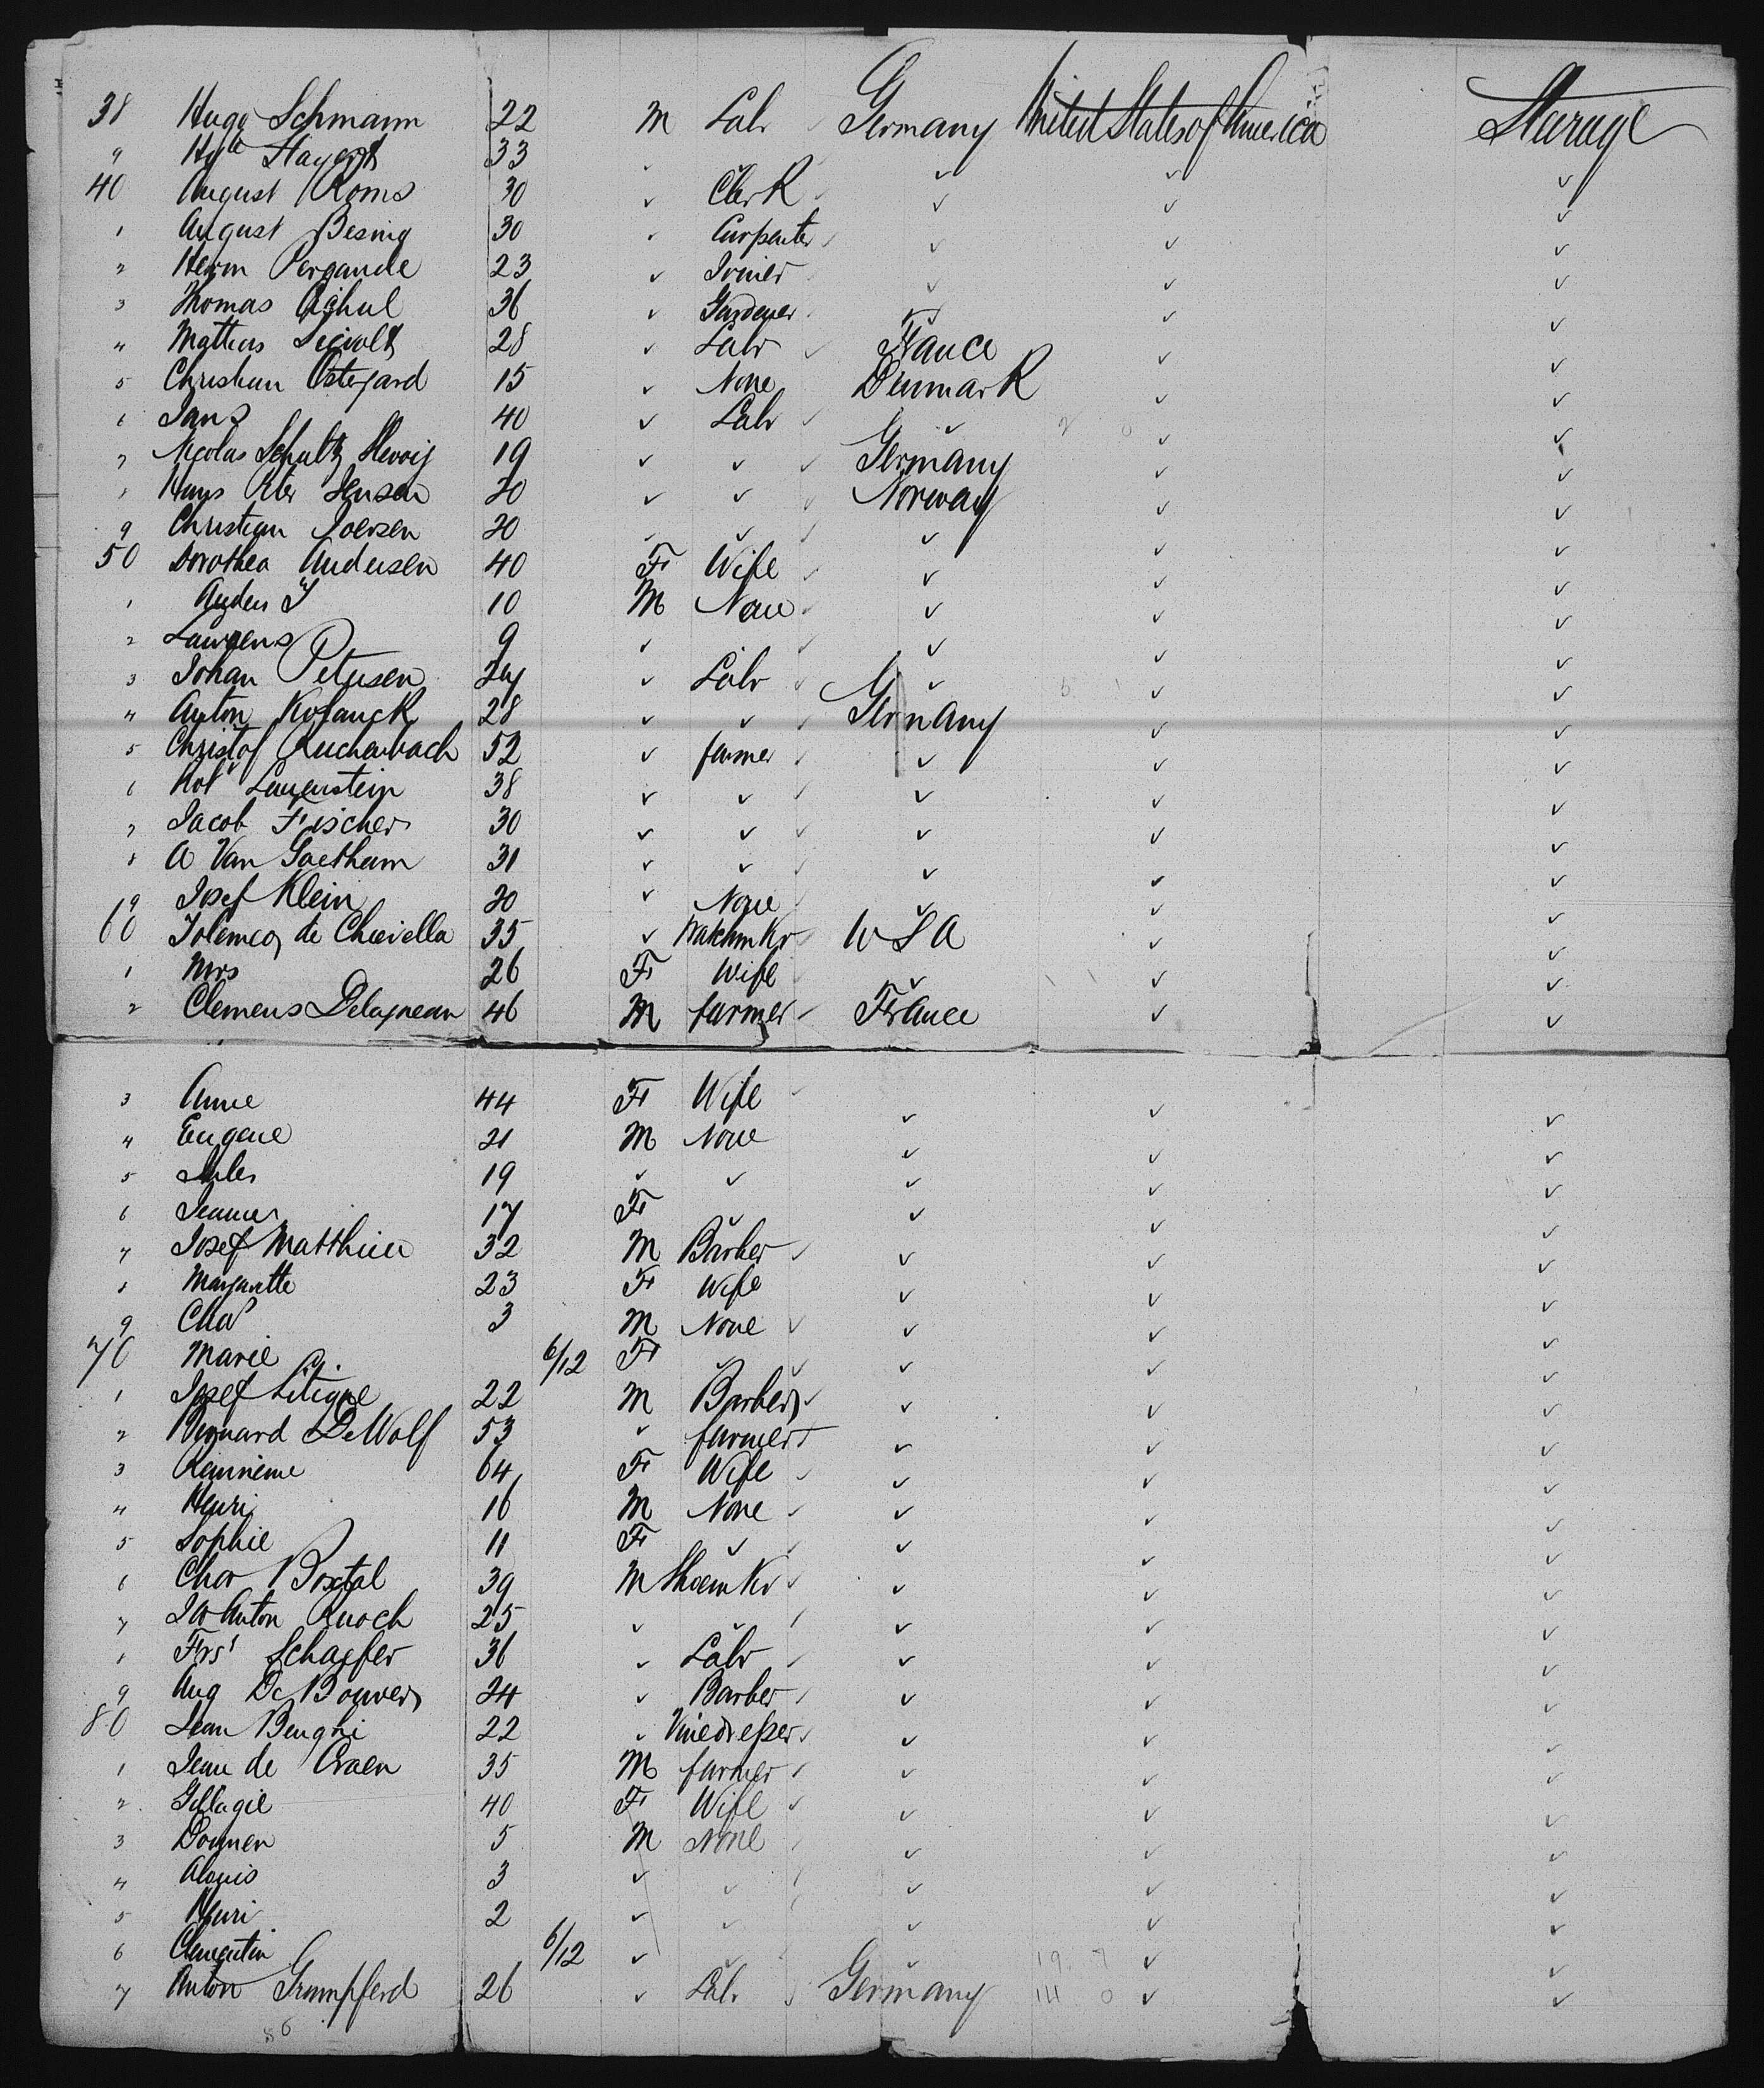 38 Hugo Schmann 22 M Labr Germany United States of America Steerage
9 Hy Stayert 33 ✓ ✓ ✓ ✓
40 August Roms 30 ✓ Clerk ✓ ✓ ✓
1 August Besing 30 ✓ Carpenter ✓ ✓ ✓
2 Herm Pergande 23 ✓ Joiner ✓ ✓ ✓
3 Thomas 36 ✓ Gardener ✓ ✓ ✓
4 Mathews 28 ✓ Labr France ✓ ✓
5 Christian Ostejard 15 ✓ None Denmark ✓ ✓
6 Jans 40 ✓ Labr ✓ ✓ ✓
7 Nicolas Schultz 19 ✓ ✓ Germany ✓ ✓
8 Hans Peter Jensen 20 ✓ ✓ Norway ✓ ✓
9 Christian Joersen 20 ✓ ✓ ✓ ✓ ✓
50 Dorothea Andersen 40 F Wife ✓ ✓ ✓
1 Anders J 10 M None ✓ ✓ ✓
2 Laurgens 9 ✓ ✓ ✓ ✓
3 Johan Petersen 24 ✓ Labr ✓ ✓ ✓
4 Anton Kofanck 28 ✓ ✓ Germany ✓ ✓
5 Christof Reichenbach 52 ✓ farmer ✓ ✓ ✓
6 Robt Lauenstein 38 ✓ ✓ ✓ ✓ ✓
7 Jacob Fischer 30 ✓ ✓ ✓ ✓ ✓
8 A Van Goethem 31 ✓ ✓ ✓ ✓ ✓
9 Josef Klein 20 ✓ None ✓ ✓ ✓
60 Tolemeo de Chievella 35 ✓ Watchmkr U S A ✓ ✓
1 Mrs 26 F Wife ✓ ✓ ✓
2 Clemens Delagnean 46 M farmer France ✓ ✓
3 Anne 44 F Wife ✓ ✓ ✓
4 Eugene 21 M None ✓ ✓ ✓
5 Jules 19 ✓ ✓ ✓ ✓ ✓
6 Jeanne 17 F ✓ ✓ ✓ ✓
7 Josef Matthieu 32 M Barber ✓ ✓ ✓
8 Margarette 23 F Wife ✓ ✓ ✓
9 Chas 3 M None ✓ ✓ ✓
70 Marie 6/12 F ✓ ✓ ✓ ✓
1 Josef Litique 22 M Barber ✓ ✓ ✓
2 Bernard DeWolf 53 ✓ farmer ✓ ✓ ✓
3 64 F Wife ✓ ✓ ✓
4 Henri 16 M None ✓ ✓ ✓
5 Sophie 11 F ✓ ✓ ✓ ✓
6 Chas Boxtal 39 M Shoemkr ✓ ✓ ✓
7 Anton Ruoch 25 ✓ ✓ ✓ ✓ ✓
8 Frs Schaefer 36 ✓ Labr ✓ ✓ ✓
9 Aug De Bouver 24 ✓ Barber ✓ ✓ ✓
80 Jean Benghi 22 ✓ Vinedresser ✓ ✓ ✓
1 Jean de Craen 35 M farmer ✓ ✓ ✓
2 40 F Wife ✓ ✓ ✓
3 Dounen 5 M None ✓ ✓ ✓
4 Alouis 3 ✓ ✓ ✓ ✓ ✓
5 Henri 2 ✓ ✓ ✓ ✓ ✓
6 Clementin 6/12 ✓ ✓ ✓ ✓ ✓
7 Anton Grumpferd 26 ✓ Labr Germany ✓ ✓
86